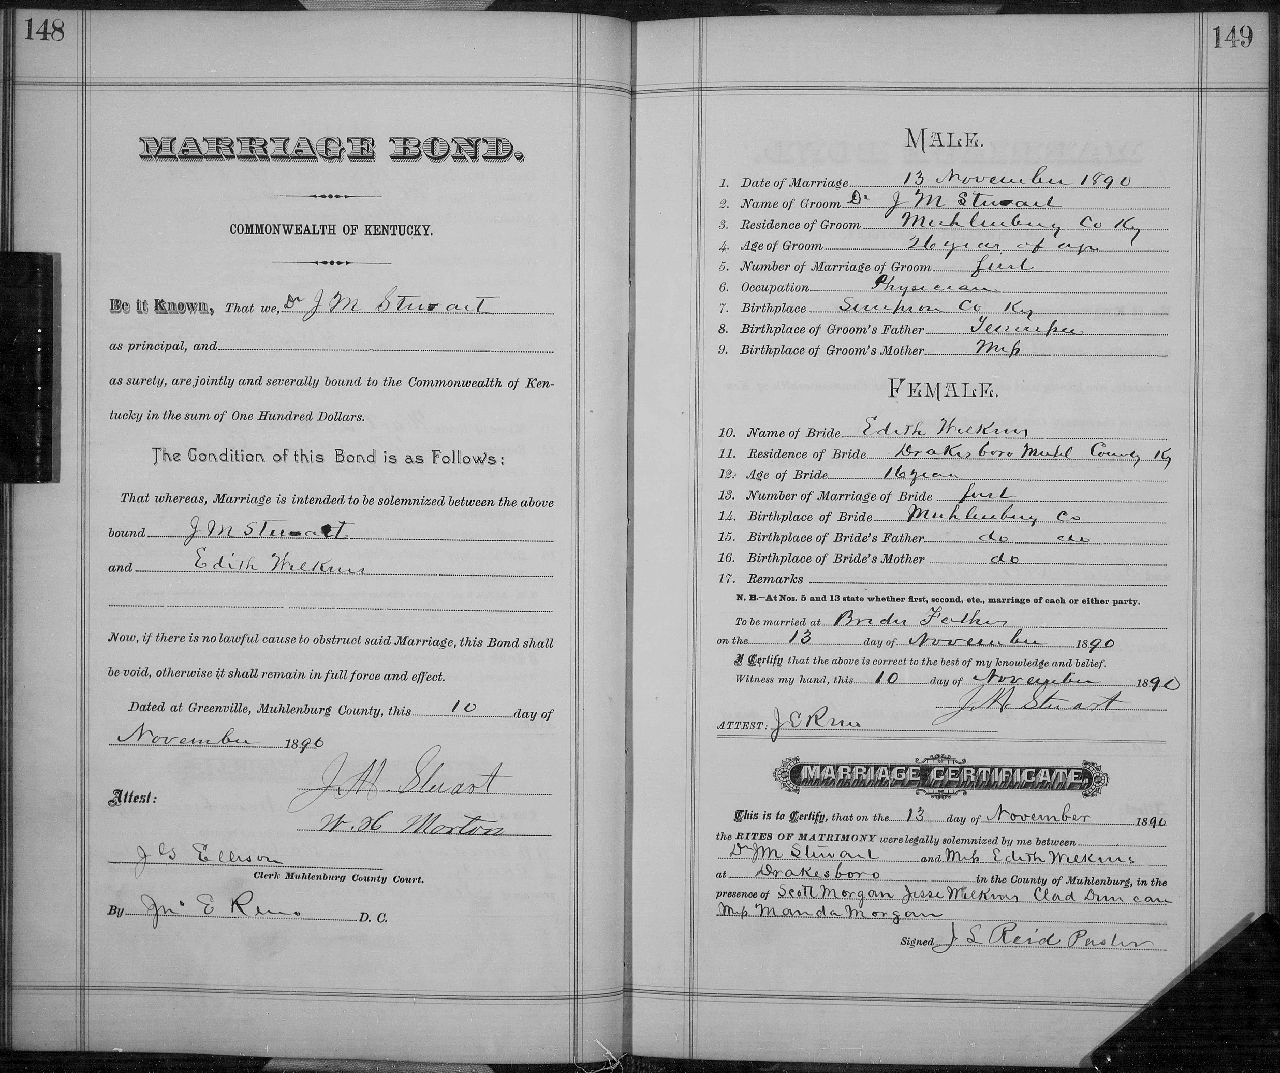 148
MARRIAGE BOND.
COMMONWEALTH OF KENTUCKY.
Be it Known, That we, Dr J M Stuart
as principal, and
as surety, are jointly and severally bound to the Commonwealth of Ken-
tucky in the sum of One Hundred Dollars.
The Condition of this Bond is as Follows:
That whereas, Marriage is intended to be solemnized between the above
bound J M Stuart
and Edith Wilkins
Now, if there is no lawful cause to obstruct said Marriage, this Bond shall
be void, otherwise it shall remain in full force and effect.
Dated at Greenville, Muhlenburg County, this 10 day of
November 1890
J M Stuart
Attest:
W. H Morton
J G Ellison
Clerk Muhlenburg County Court.
By Jno E Reno D. C.
149
MALE.
1. Date of Marriage 13 November 1890
2. Name of Groom Dr J M Stuart
3. Residence of Groom Muhlenburg Co Ky
4. Age of Groom 26 years of age
5. Number of Marriage of Groom first
6. Occupation Physician
7. Birthplace Simpson Co Ky
8. Birthplace of Groom's Father Tennessee
9. Birthplace of Groom's Mother Miss
FEMALE.
10. Name of Bride Edith Wilkins
11. Residence of Bride Drakesboro Muhl County Ky
12. Age of Bride 16 years
13. Number of Marriage of Bride first
14. Birthplace of Bride Muhlenburg Co
15. Birthplace of Bride's Father do do
16. Birthplace of Bride's Mother do
17. Remarks
N. B.—At Nos. 5 and 13 state whether first, second, etc., marriage of each or either party.
To be married at Brides Father
on the 13 day of November 1890
I Certify that the above is correct to the best of my knowledge and belief.
Witness my hand, this 10 day of November 1890
J M Stuart
ATTEST: J E Reno
MARRIAGE CERTIFICATE.
This is to Certify, that on the 13 day of November 1890
the RITES OF MATRIMONY were legally solemnized by me between
Dr J M Stuart and Miss Edith Wilkins
at Drakesboro in the County of Muhlenburg, in the
presence of Scott Morgan Jesse Wilkins Clad Duncan
Miss Manda Morgan
Signed J S Reid Pastor